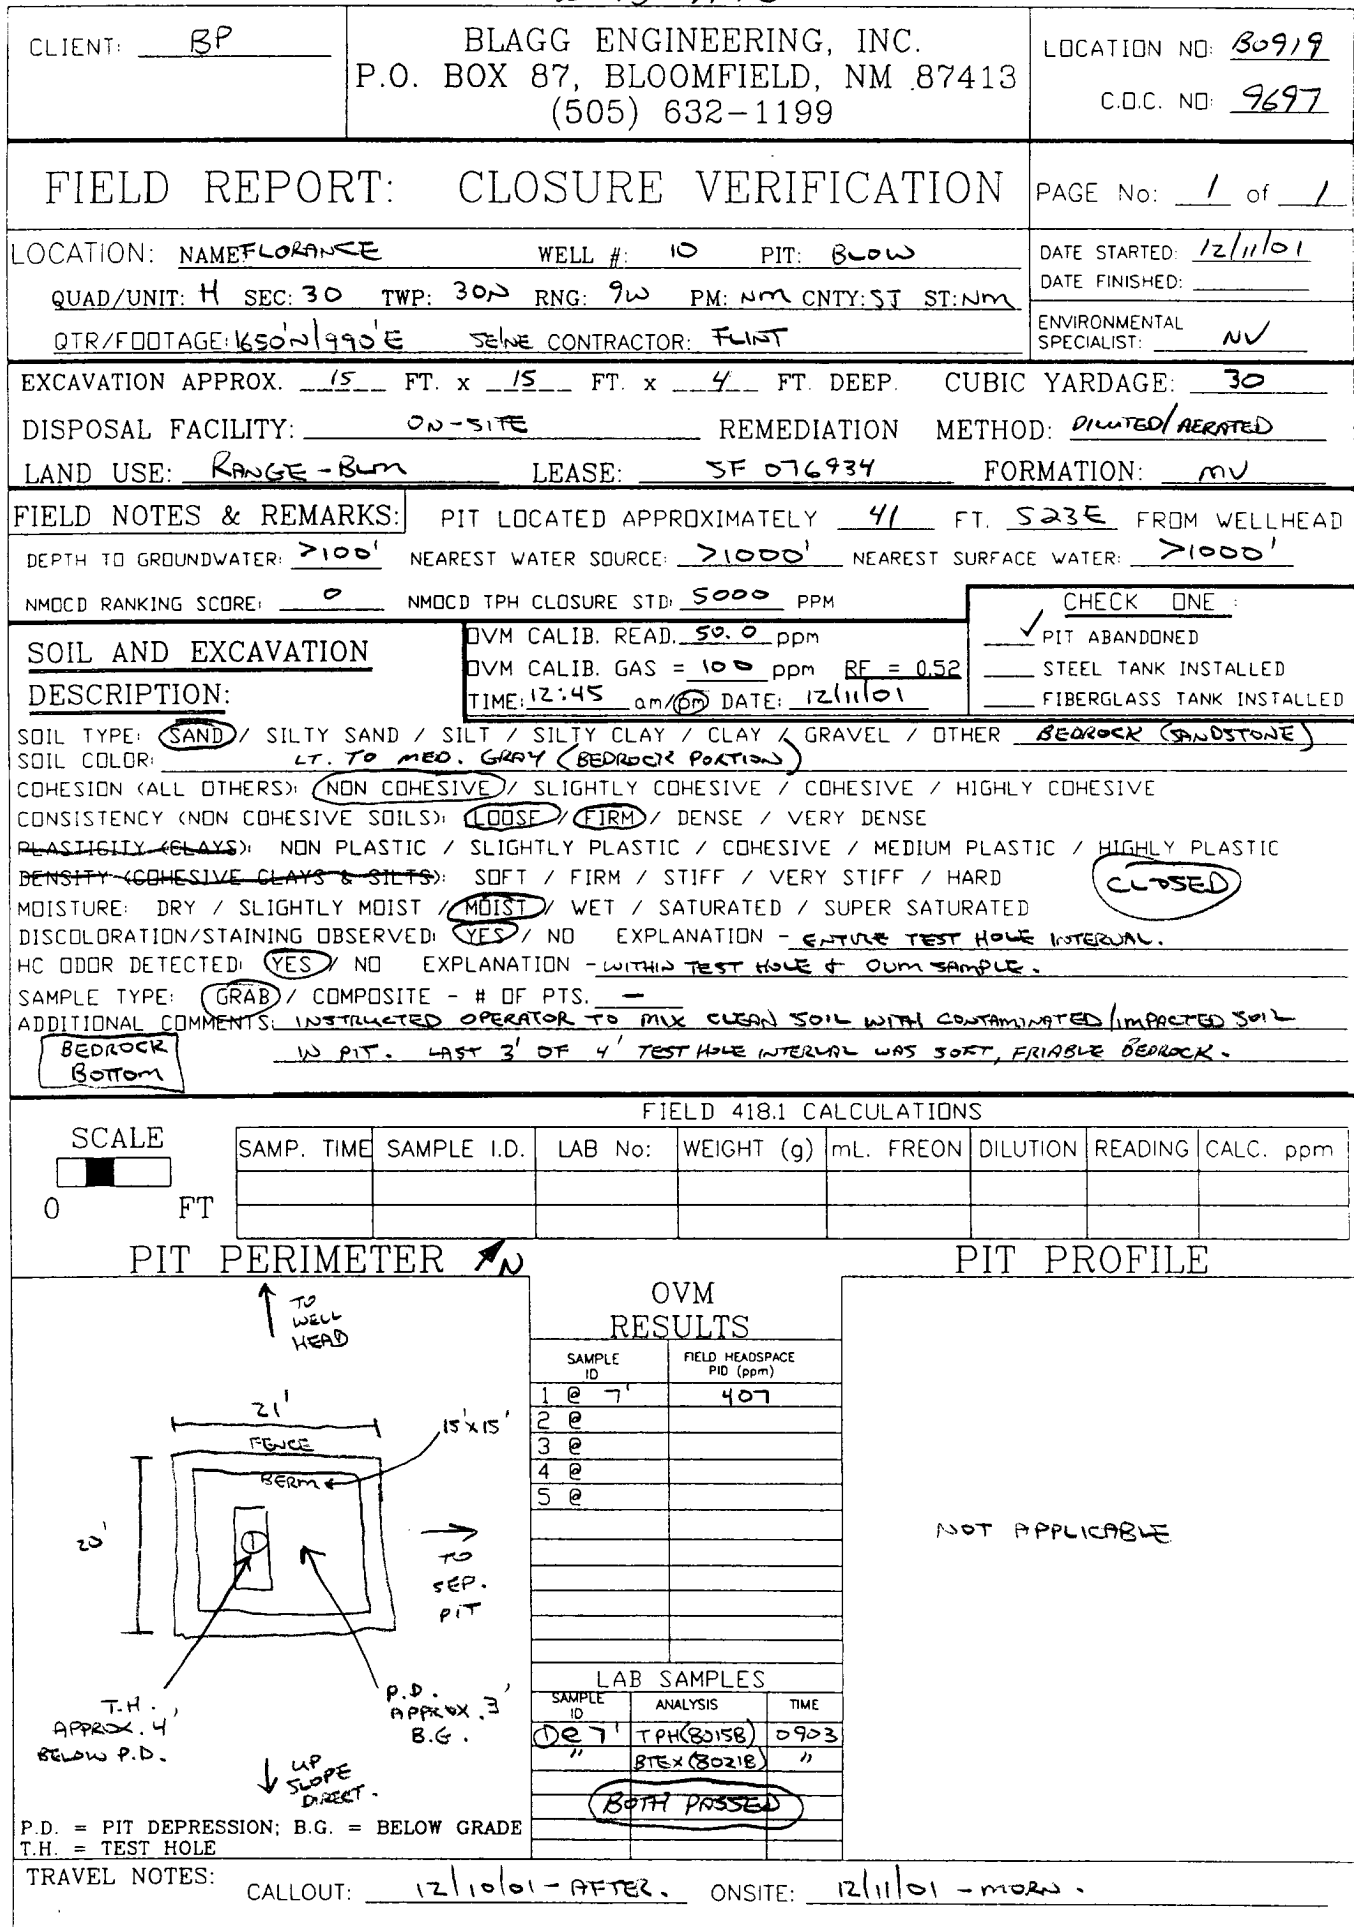 CLIENT: BP
BLAGG ENGINEERING, INC.
P.O. BOX 87, BLOOMFIELD, NM 87413
(505) 632-1199
LOCATION NO: B0919
C.O.C. NO: 9697
FIELD REPORT: CLOSURE VERIFICATION
PAGE No: 1 of 1
LOCATION: NAME FLORANCE WELL #: 10 PIT: BLOW
QUAD/UNIT: H SEC: 30 TWP: 30N RNG: 9W PM: NM CNTY: SJ ST: NM
QTR/FOOTAGE: 1650'N/990'E SE/NE CONTRACTOR: FLINT
DATE STARTED: 12/11/01
DATE FINISHED:
ENVIRONMENTAL
SPECIALIST: NV
EXCAVATION APPROX. 15 FT. x 15 FT. x 4 FT. DEEP. CUBIC YARDAGE: 30
DISPOSAL FACILITY: ON-SITE REMEDIATION METHOD: DILUTED/AERATED
LAND USE: RANGE - BLM LEASE: SF 076934 FORMATION: MV
FIELD NOTES & REMARKS: PIT LOCATED APPROXIMATELY 41 FT. S23E FROM WELLHEAD
DEPTH TO GROUNDWATER: >100' NEAREST WATER SOURCE: >1000' NEAREST SURFACE WATER: >1000'
NMOCD RANKING SCORE: 0 NMOCD TPH CLOSURE STD: 5000 PPM
CHECK ONE :
✓ PIT ABANDONED
STEEL TANK INSTALLED
FIBERGLASS TANK INSTALLED
SOIL AND EXCAVATION
DESCRIPTION:
OVM CALIB. READ. 50.0 ppm
OVM CALIB. GAS = 100 ppm RF = 0.52
TIME: 12:45 am/pm DATE: 12/11/01
SOIL TYPE: SAND / SILTY SAND / SILT / SILTY CLAY / CLAY / GRAVEL / OTHER BEDROCK (SANDSTONE)
SOIL COLOR: LT. TO MED. GRAY (BEDROCK PORTION)
COHESION (ALL OTHERS): NON COHESIVE / SLIGHTLY COHESIVE / COHESIVE / HIGHLY COHESIVE
CONSISTENCY (NON COHESIVE SOILS): LOOSE / FIRM / DENSE / VERY DENSE
PLASTICITY (CLAYS): NON PLASTIC / SLIGHTLY PLASTIC / COHESIVE / MEDIUM PLASTIC / HIGHLY PLASTIC
DENSITY (COHESIVE CLAYS & SILTS): SOFT / FIRM / STIFF / VERY STIFF / HARD
CLOSED
MOISTURE: DRY / SLIGHTLY MOIST / MOIST / WET / SATURATED / SUPER SATURATED
DISCOLORATION/STAINING OBSERVED: YES / NO EXPLANATION - ENTIRE TEST HOLE INTERVAL.
HC ODOR DETECTED: YES / NO EXPLANATION - WITHIN TEST HOLE & OVM SAMPLE.
SAMPLE TYPE: GRAB / COMPOSITE - # OF PTS. —
ADDITIONAL COMMENTS: INSTRUCTED OPERATOR TO MIX CLEAN SOIL WITH CONTAMINATED/IMPACTED SOIL
IN PIT. LAST 3' OF 4' TEST HOLE INTERVAL WAS SOFT, FRIABLE BEDROCK.
BEDROCK
BOTTOM
FIELD 418.1 CALCULATIONS
SCALE
0 FT
SAMP. TIME SAMPLE I.D. LAB No: WEIGHT (g) mL. FREON DILUTION READING CALC. ppm
PIT PERIMETER N
PIT PROFILE
TO
WELL
HEAD
21'
FENCE
15'x15'
BERM
20'
1
TO
SEP.
PIT
T.H.
APPROX. 4'
BELOW P.D.
P.D.
APPROX. 3'
B.G.
UP
SLOPE
DIRECT.
P.D. = PIT DEPRESSION; B.G. = BELOW GRADE
T.H. = TEST HOLE
OVM
RESULTS
SAMPLE ID FIELD HEADSPACE PID (ppm)
1 @ 7' 407
2 @
3 @
4 @
5 @
LAB SAMPLES
SAMPLE ID ANALYSIS TIME
1 @ 7' TPH(8015B) 0903
" BTEX(8021B) "
BOTH PASSED
NOT APPLICABLE
TRAVEL NOTES: CALLOUT: 12/10/01 - AFTER. ONSITE: 12/11/01 - MORN.